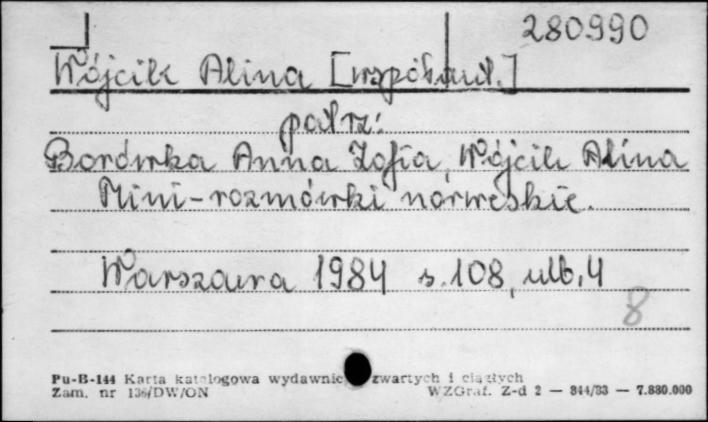 280990
Wójcik Alina [współaut.]
patrz:
Borówka Anna Zofia, Wójcik Alina
Mini-rozmówki norweskie.
Warszawa 1984 s. 108, ulb. 4
8
Pu-B-144 Karta katalogowa wydawnic zwartych i ciągłych
Zam. nr 136/DW/ON WZGraf. Z-d 2 — 344/83 — 7.880.000